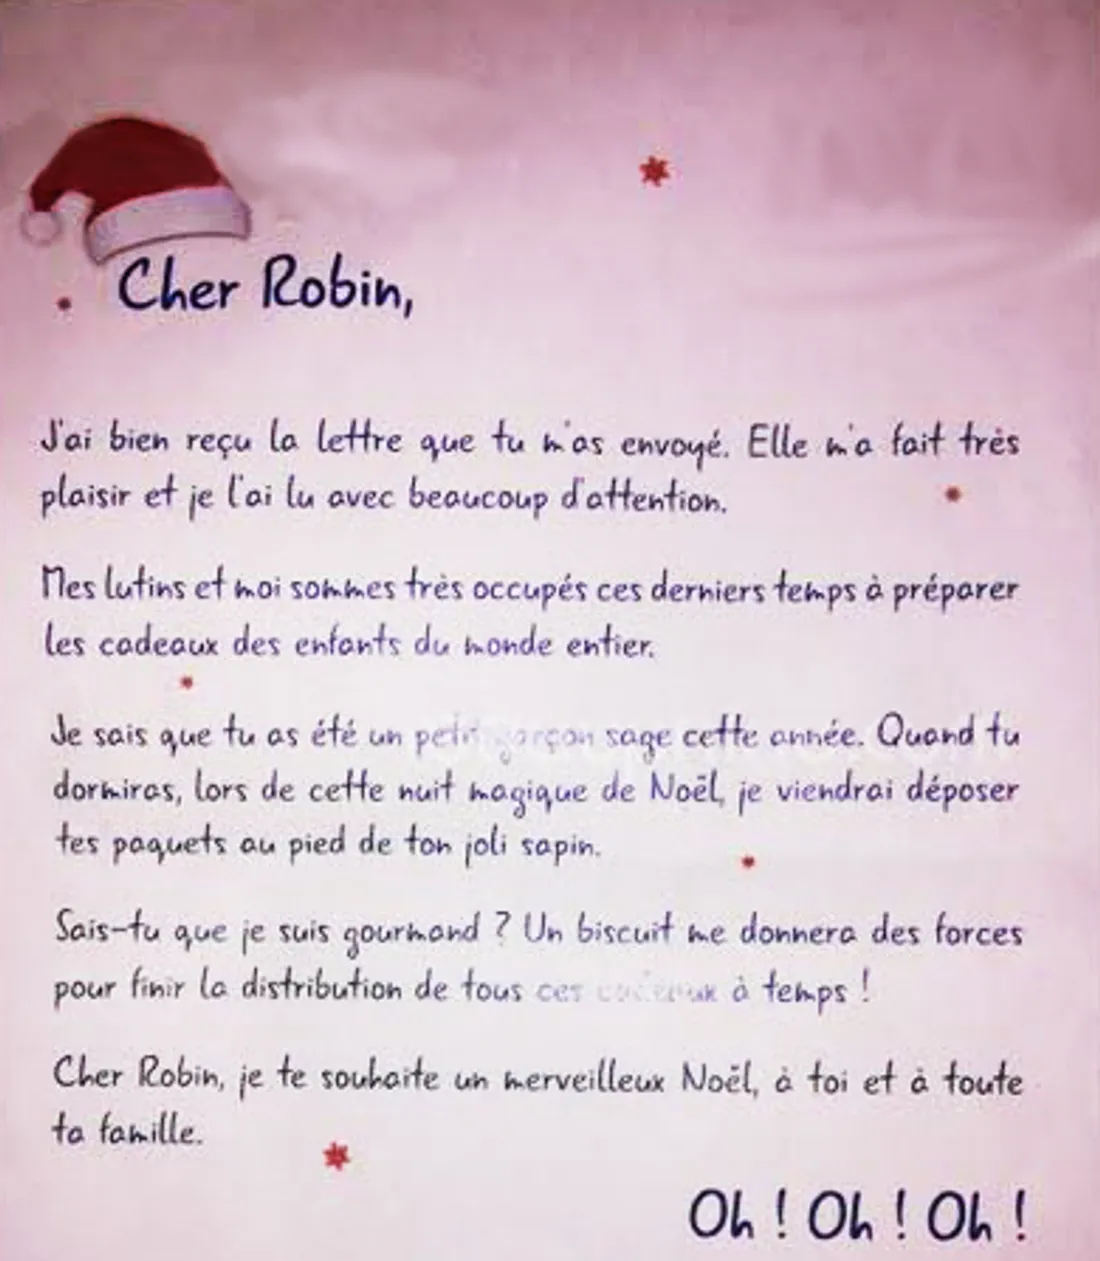 Cher Robin,
J'ai bien reçu la lettre que tu m'as envoyé. Elle m'a fait très
plaisir et je l'ai lu avec beaucoup d'attention.
Mes lutins et moi sommes très occupés ces derniers temps à préparer
les cadeaux des enfants du monde entier.
Je sais que tu as été un petit garçon sage cette année. Quand tu
dormiras, lors de cette nuit magique de Noël, je viendrai déposer
tes paquets au pied de ton joli sapin.
Sais-tu que je suis gourmand ? Un biscuit me donnera des forces
pour finir la distribution de tous ces cadeaux à temps !
Cher Robin, je te souhaite un merveilleux Noël, à toi et à toute
ta famille.
Oh ! Oh ! Oh !